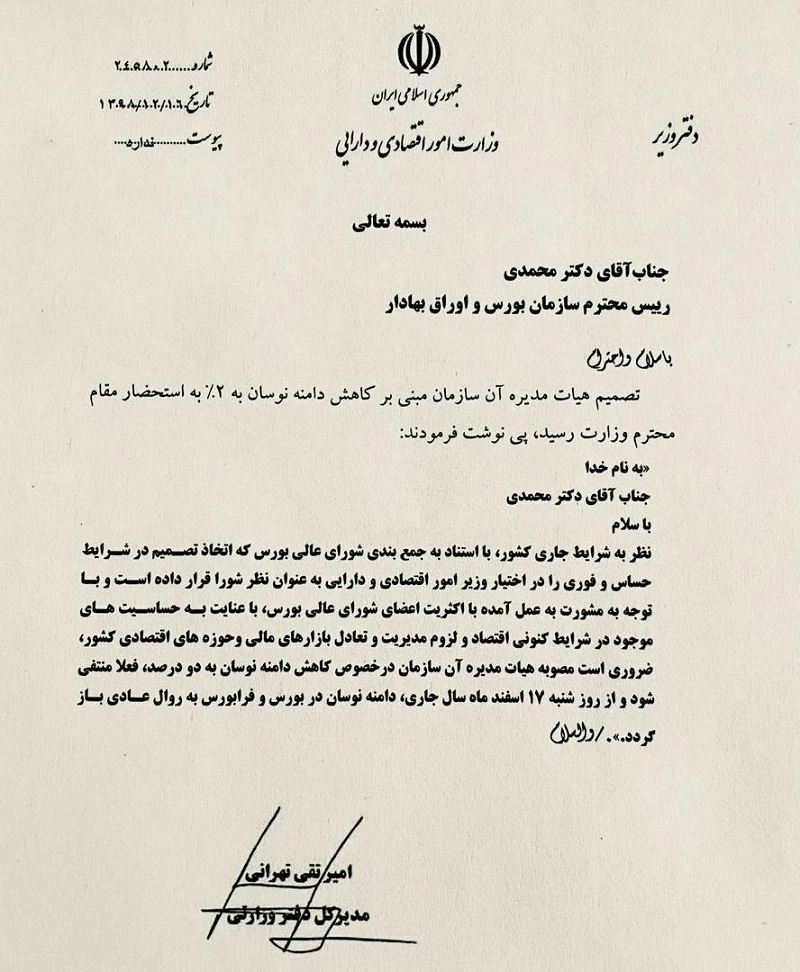 جمهوری اسلامی ایران
وزارت امور اقتصادی و دارایی
دفتر وزیر
شماره......۲۴۵۸۰۲
تاریخ.۱۳۹۸/۱۲/۱۶
پیوست..........ندارد....
بسمه تعالی
جناب‌آقای دکتر محمدی
رییس محترم سازمان بورس و اوراق بهادار
باسلام و احترام
تصمیم هیات مدیره آن سازمان مبنی بر کاهش دامنه نوسان به ۲٪ به استحضار مقام
محترم وزارت رسید، پی نوشت فرمودند:
«به نام خدا
جناب آقای دکتر محمدی
با سلام
نظر به شرایط جاری کشور، با استناد به جمع بندی شورای عالی بورس که اتخاذ تصمیم در شرایط
حساس و فوری را در اختیار وزیر امور اقتصادی و دارایی به عنوان نظر شورا قرار داده است و با
توجه به مشورت به عمل آمده با اکثریت اعضای شورای عالی بورس، با عنایت به حساسیت های
موجود در شرایط کنونی اقتصاد و لزوم مدیریت و تعادل بازارهای مالی وحوزه های اقتصادی کشور،
ضروری است مصوبه هیات مدیره آن سازمان درخصوص کاهش دامنه نوسان به دو درصد، فعلا منتفی
شود و از روز شنبه ۱۷ اسفند ماه سال جاری، دامنه نوسان در بورس و فرابورس به روال عادی باز
گردد.»./والسلام
امیر تقی تهرانی
مدیرکل دفتر وزارتی